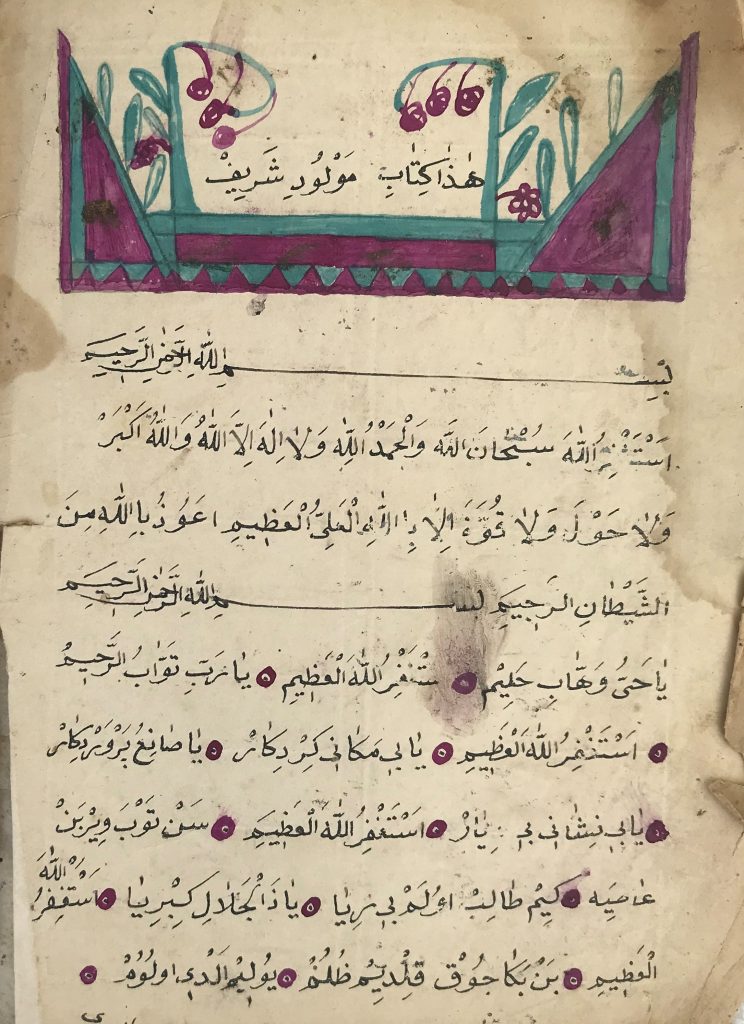 هٰذَا كِتَابِ مَوْلُودِ شَرِيفْ
بِسْمِ اللّٰهِ الرَّحْمٰنِ الرَّحِيمِ
اَسْتَغْفِرُ اللّٰهَ سُبْحَانَ اللَّه وَالْحَمْدُ لِلّٰهِ وَلَا اِلٰهَ اِلَّا اللّٰهُ وَاللّٰهُ اَكْبَرْ
وَلَا حَوْلَ وَلَا قُوَّةَ اِلَّا بِاللّٰهِ الْعَلِىُّ الْعَظِيمِ اَعُوذُ بِاللّٰهِ مِنَ
الشَّيْطَانِ الرَّجِيمِ بِسْمِ اللّٰهِ الرَّحْمٰنِ الرَّحِيمِ
يَا حَىُّ وَهَّابِ حَلِيمْ سْتَغْفِرُ اللّٰهَ الْعَظِيمِ يَا رَبِّ تَوَّابُ الرَّحِيمُ
اَسْتَغْفِرُ اللّٰهَ الْعَظِيمِ يَا بِى مَكَانِى كِرْدِكَارْ يَا صَانِعُ پَرْوَرْدِكَارْ
يَا بِى نِشَانِى بِى اَسْتَغْفِرُ اللّٰهَ الْعَظِيمِ سَنْ تَوْبَ وِيرْبَنْ
عَاصِيَه كِيمْ طَالِبْ اوُلَمْ بِى رِيَا يَا ذَا الْجَلَالِ كِبْرِيَا اَسْتَغْفِرُ اللّٰهَ
الْعَظِيمِ بَنْ بَكَا چُوقْ قِلْدِيمْ ظُلُمْ يُولِيمْ اَلْدِى اولُومْ